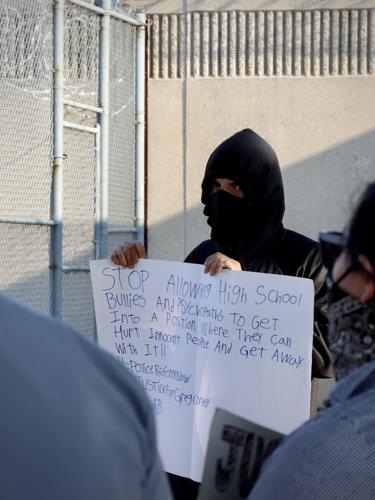 STOP Allowing High School
Bullies And PSYCHOPATHS To GET
Into A Postion Where They Can
Hurt Innocent People And Get Away
With It!!
#PoliceReformNow